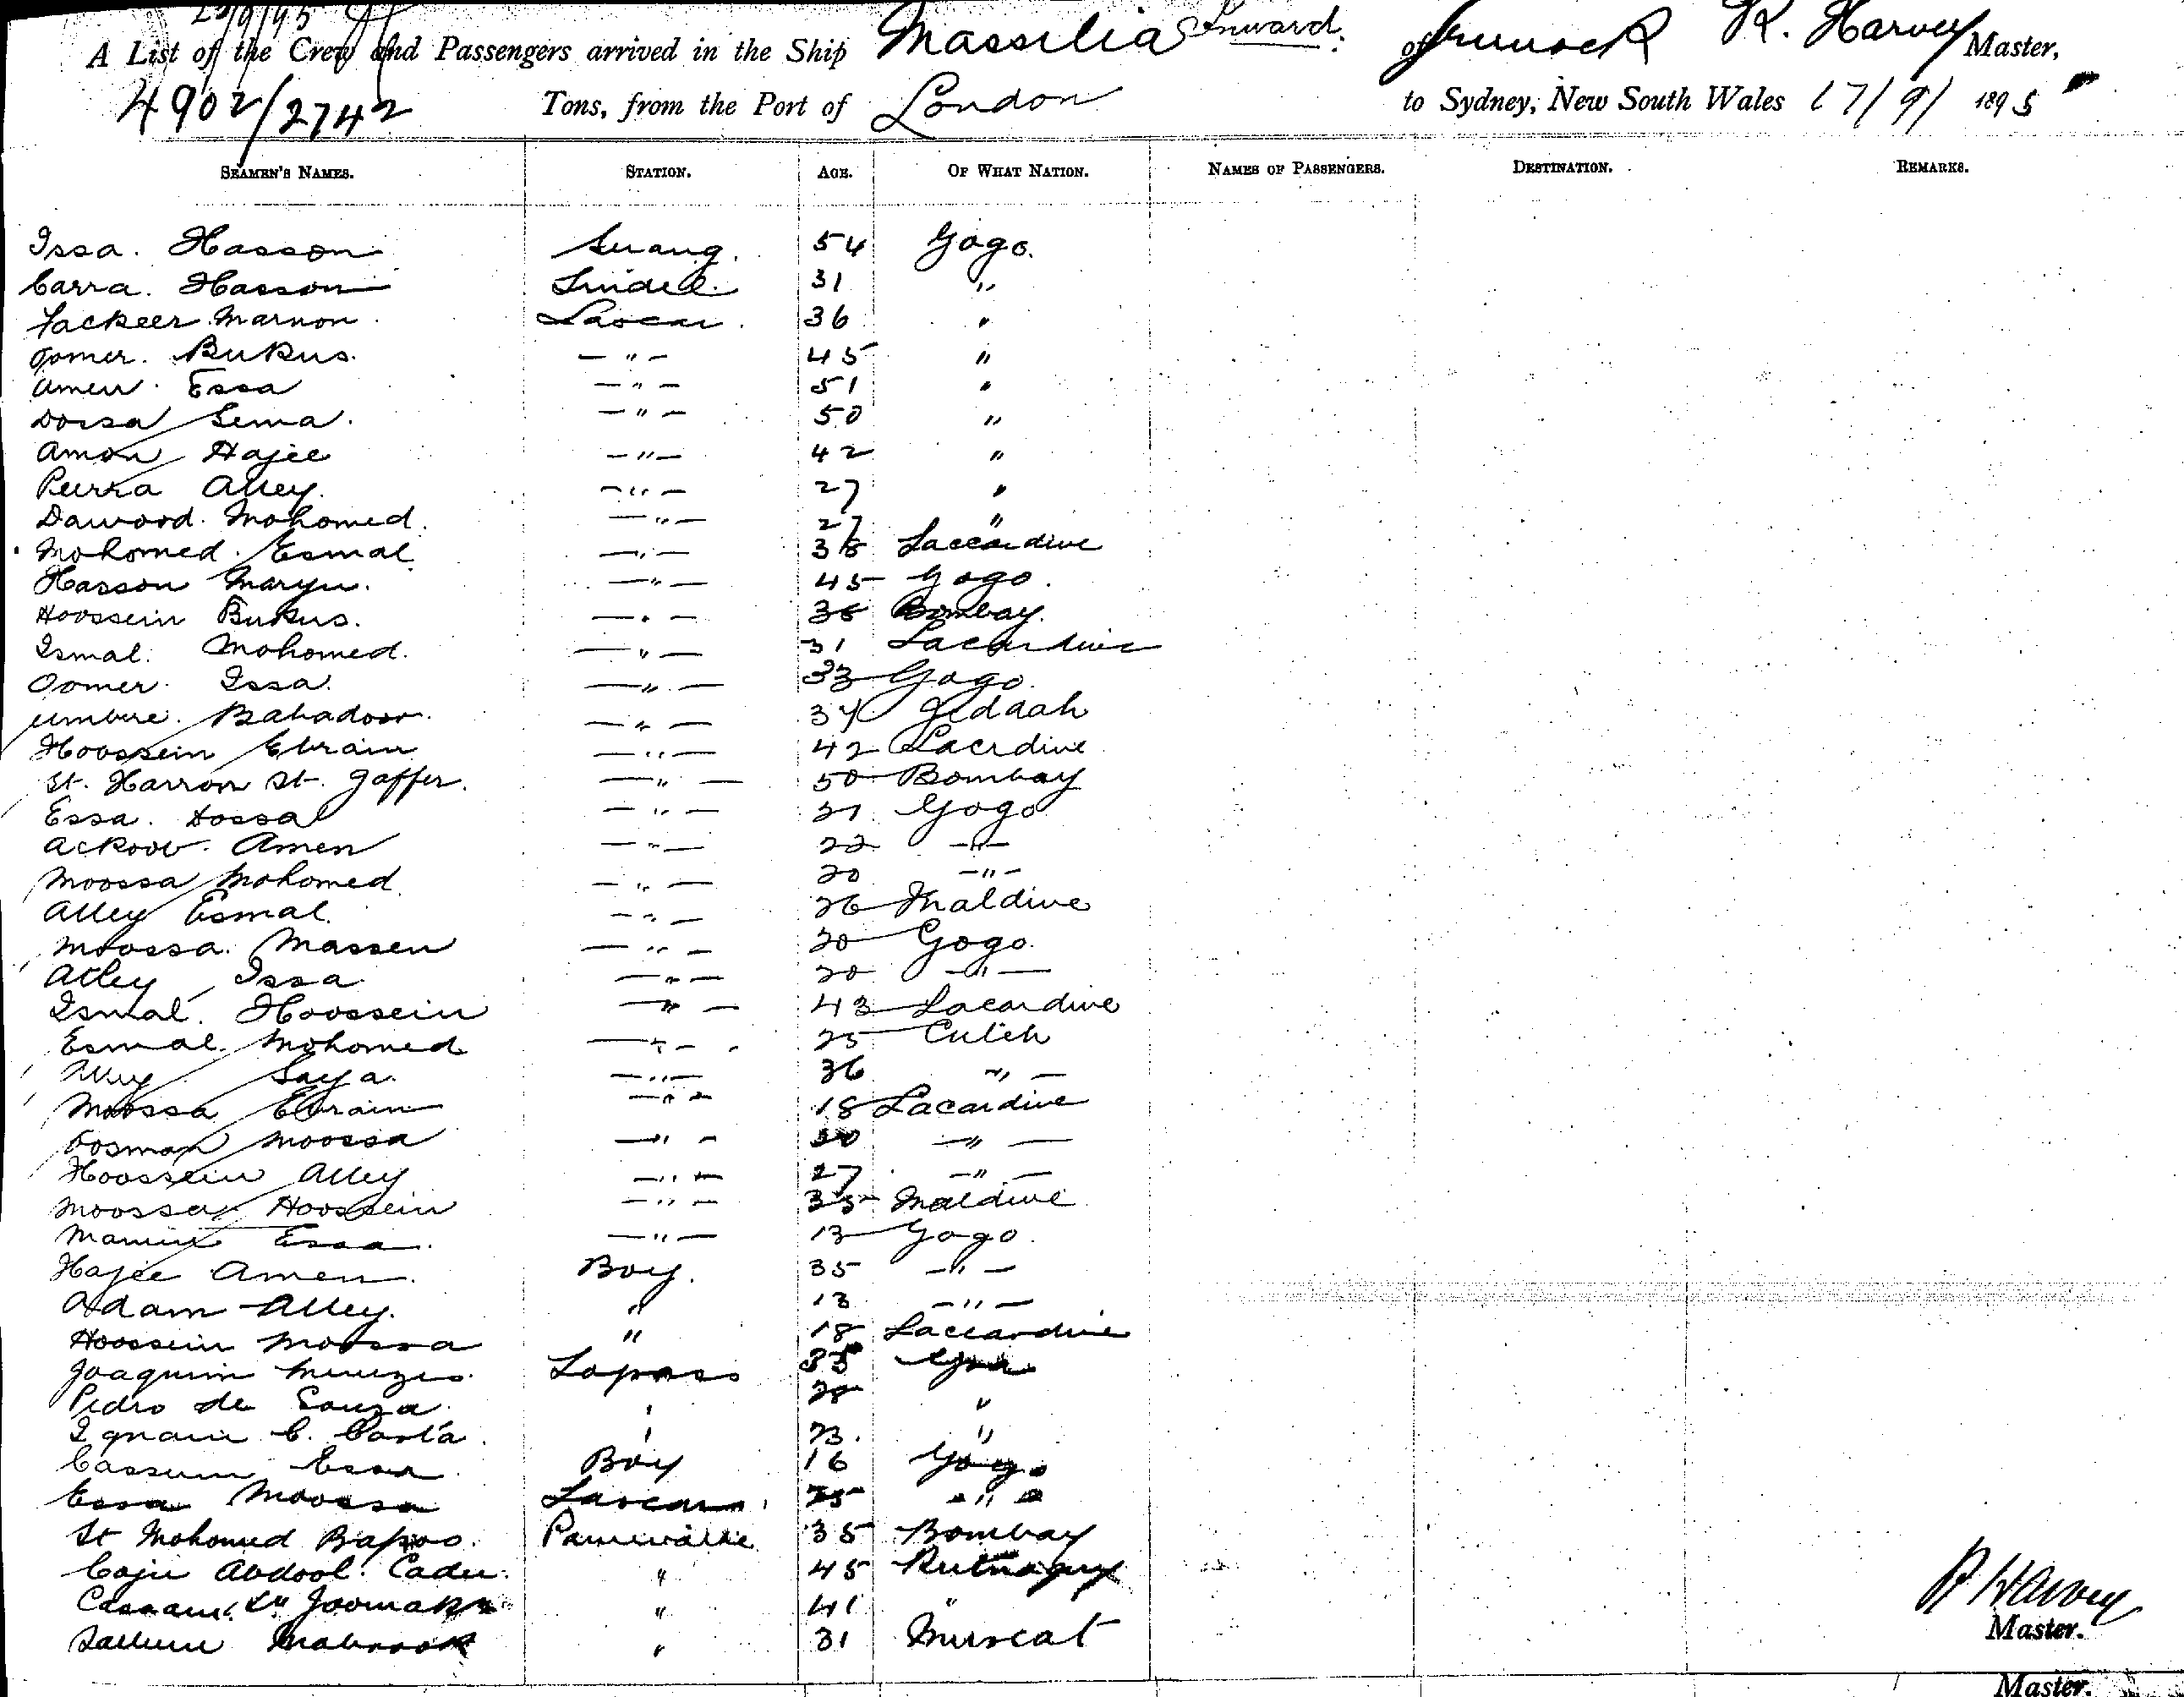 A List of the Crew and Passengers arrived in the Ship Massilia Inward. of Greenock R. Harvey Master,
4902/2742 Tons, from the Port of London to Sydney, New South Wales 17/9/ 1895
SEAMEN'S NAMES. STATION. AGE. OF WHAT NATION. NAMES OF PASSENGERS. DESTINATION. REMARKS.
Issa. Hasson 54 Gogo.
Carra. Hasson 31 "
Fackeer Marnon Lascar. 36 "
Oomer. Bukus. — " — 45 "
Amen. Essa — " — 51 "
Dossa — " — 50 "
Amon Hajee — " — 42 "
Peerra Alley. — " — 27 "
Dawood. Mohomed. — " — 27 "
Mohomed. Esmal — " — 38 Laccardive
Hasson — " — 45 Gogo.
Hoossein Bukus. — " — Bombay.
Ismal. Mohomed. — " — 31 Lacardive
Oomer. Issa. — " — 33 Gogo
Bahadoor. — " — Jeddah
Hoossein Ebraim — " — 42 Lacrdive
St. Harron St. Gaffer. — " — 50 Bombay
Essa. Hossa — " — Gogo
Ackoov. Amen — " — 22 — " —
Moossa Mohomed — " — 20 — " —
Alley Esmal. — " — 26 Maldive
Moossa. Massen — " — 20 Gogo.
Alley Issa — " — 20 — " —
Ismal. Hoossein — " — 43 Lacardive
Esmal. Mohomed — " — 25 Cutch
Alley Saya. — " — 36 " —
Moossa Ebraim — " — 18 Lacardive
Oosman Moossa — " — — " —
Hoossein Alley — " — 27 — " —
Moossa Hoossein — " — 35 Maldive
Essa. — " — 13 Gogo.
Hajee Amen. Boy. 35 — " —
Adam Alley. " 13 — " —
Hoossein Moossa " 18 Laccardive
Joaquim Menezes. Topass 33 Goa
Pedro de Souza. " 28 "
C. Costa. " 23. "
Cassum Essa Boy 16 Gogo
Essa Moossa Lascar 25 "
St Mohomed Bapoo. 35 Bombay
Abdool. Cader. " 45
" 41 "
Mabrook " 31 Muscat
R Harvey
Master.
Master.